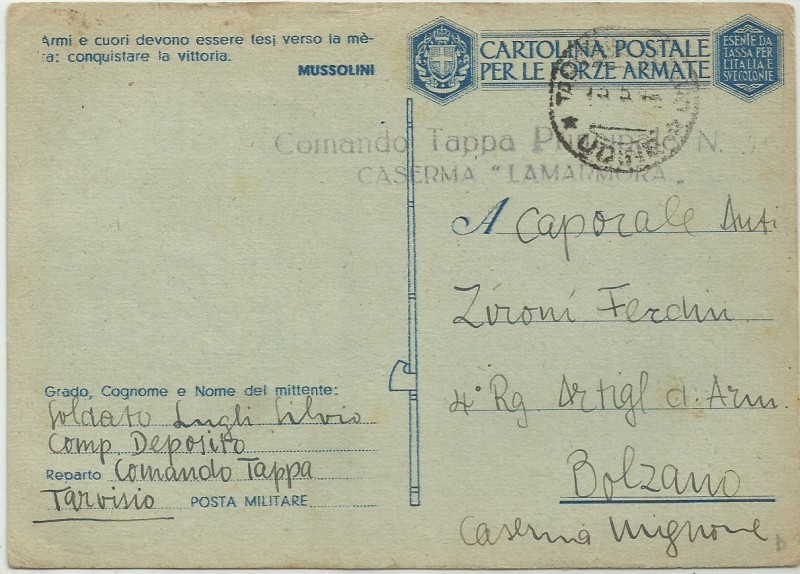 Armi e cuori devono essere tesi verso la mè-
ta: conquistare la vittoria.
MUSSOLINI
CARTOLINA POSTALE
PER LE FORZE ARMATE
ESENTE DA
TASSA PER
L'ITALIA E
SUE COLONIE
UDINE
Comando Tappa Principale N.
CASERMA "LAMARMORA"
A Caporale
Zironi Ferdin.
4° Rg Artigl d. Arm.
Bolzano
Caserma Mignone
Grado, Cognome e Nome del mittente:
Soldato Lugli Silvio
Comp. Deposito
Reparto Comando Tappa
Tarvisio POSTA MILITARE